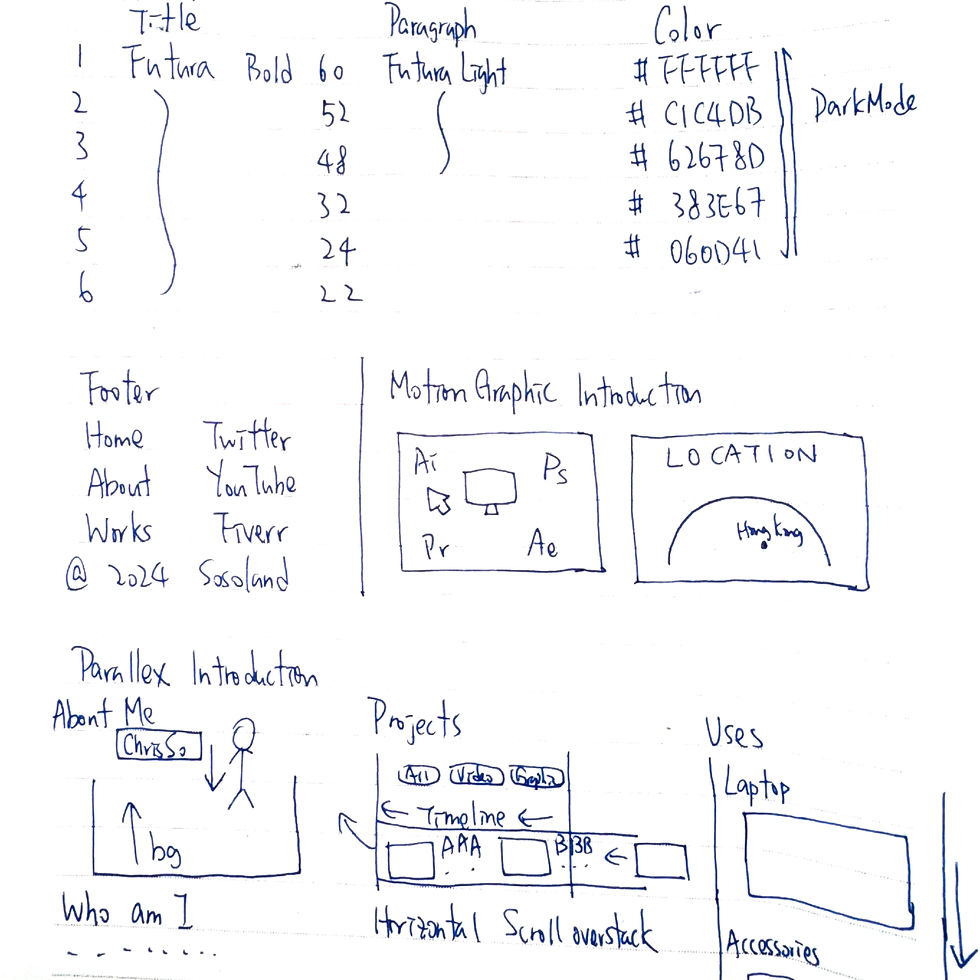 Title Paragraph Color
1 Futura Bold 60 Futura Light # FFFFFF
2 52 # C1C4DB DarkMode
3 48 # 62678D
4 32 # 383E67
5 24 # 060D41
6 22
Footer
Home Twitter
About YouTube
Works Fiverr
@ 2024 Sosoland
MotionGraphic Introduction
Ai Ps
Pr Ae
LOCATION
Hong Kong
Parallex Introduction
About Me
Chris So
bg
Who am I
Projects
All Video Graphic
Timeline
AAA BBB
Horizontal Scroll overstack
Uses
Laptop
Accessories